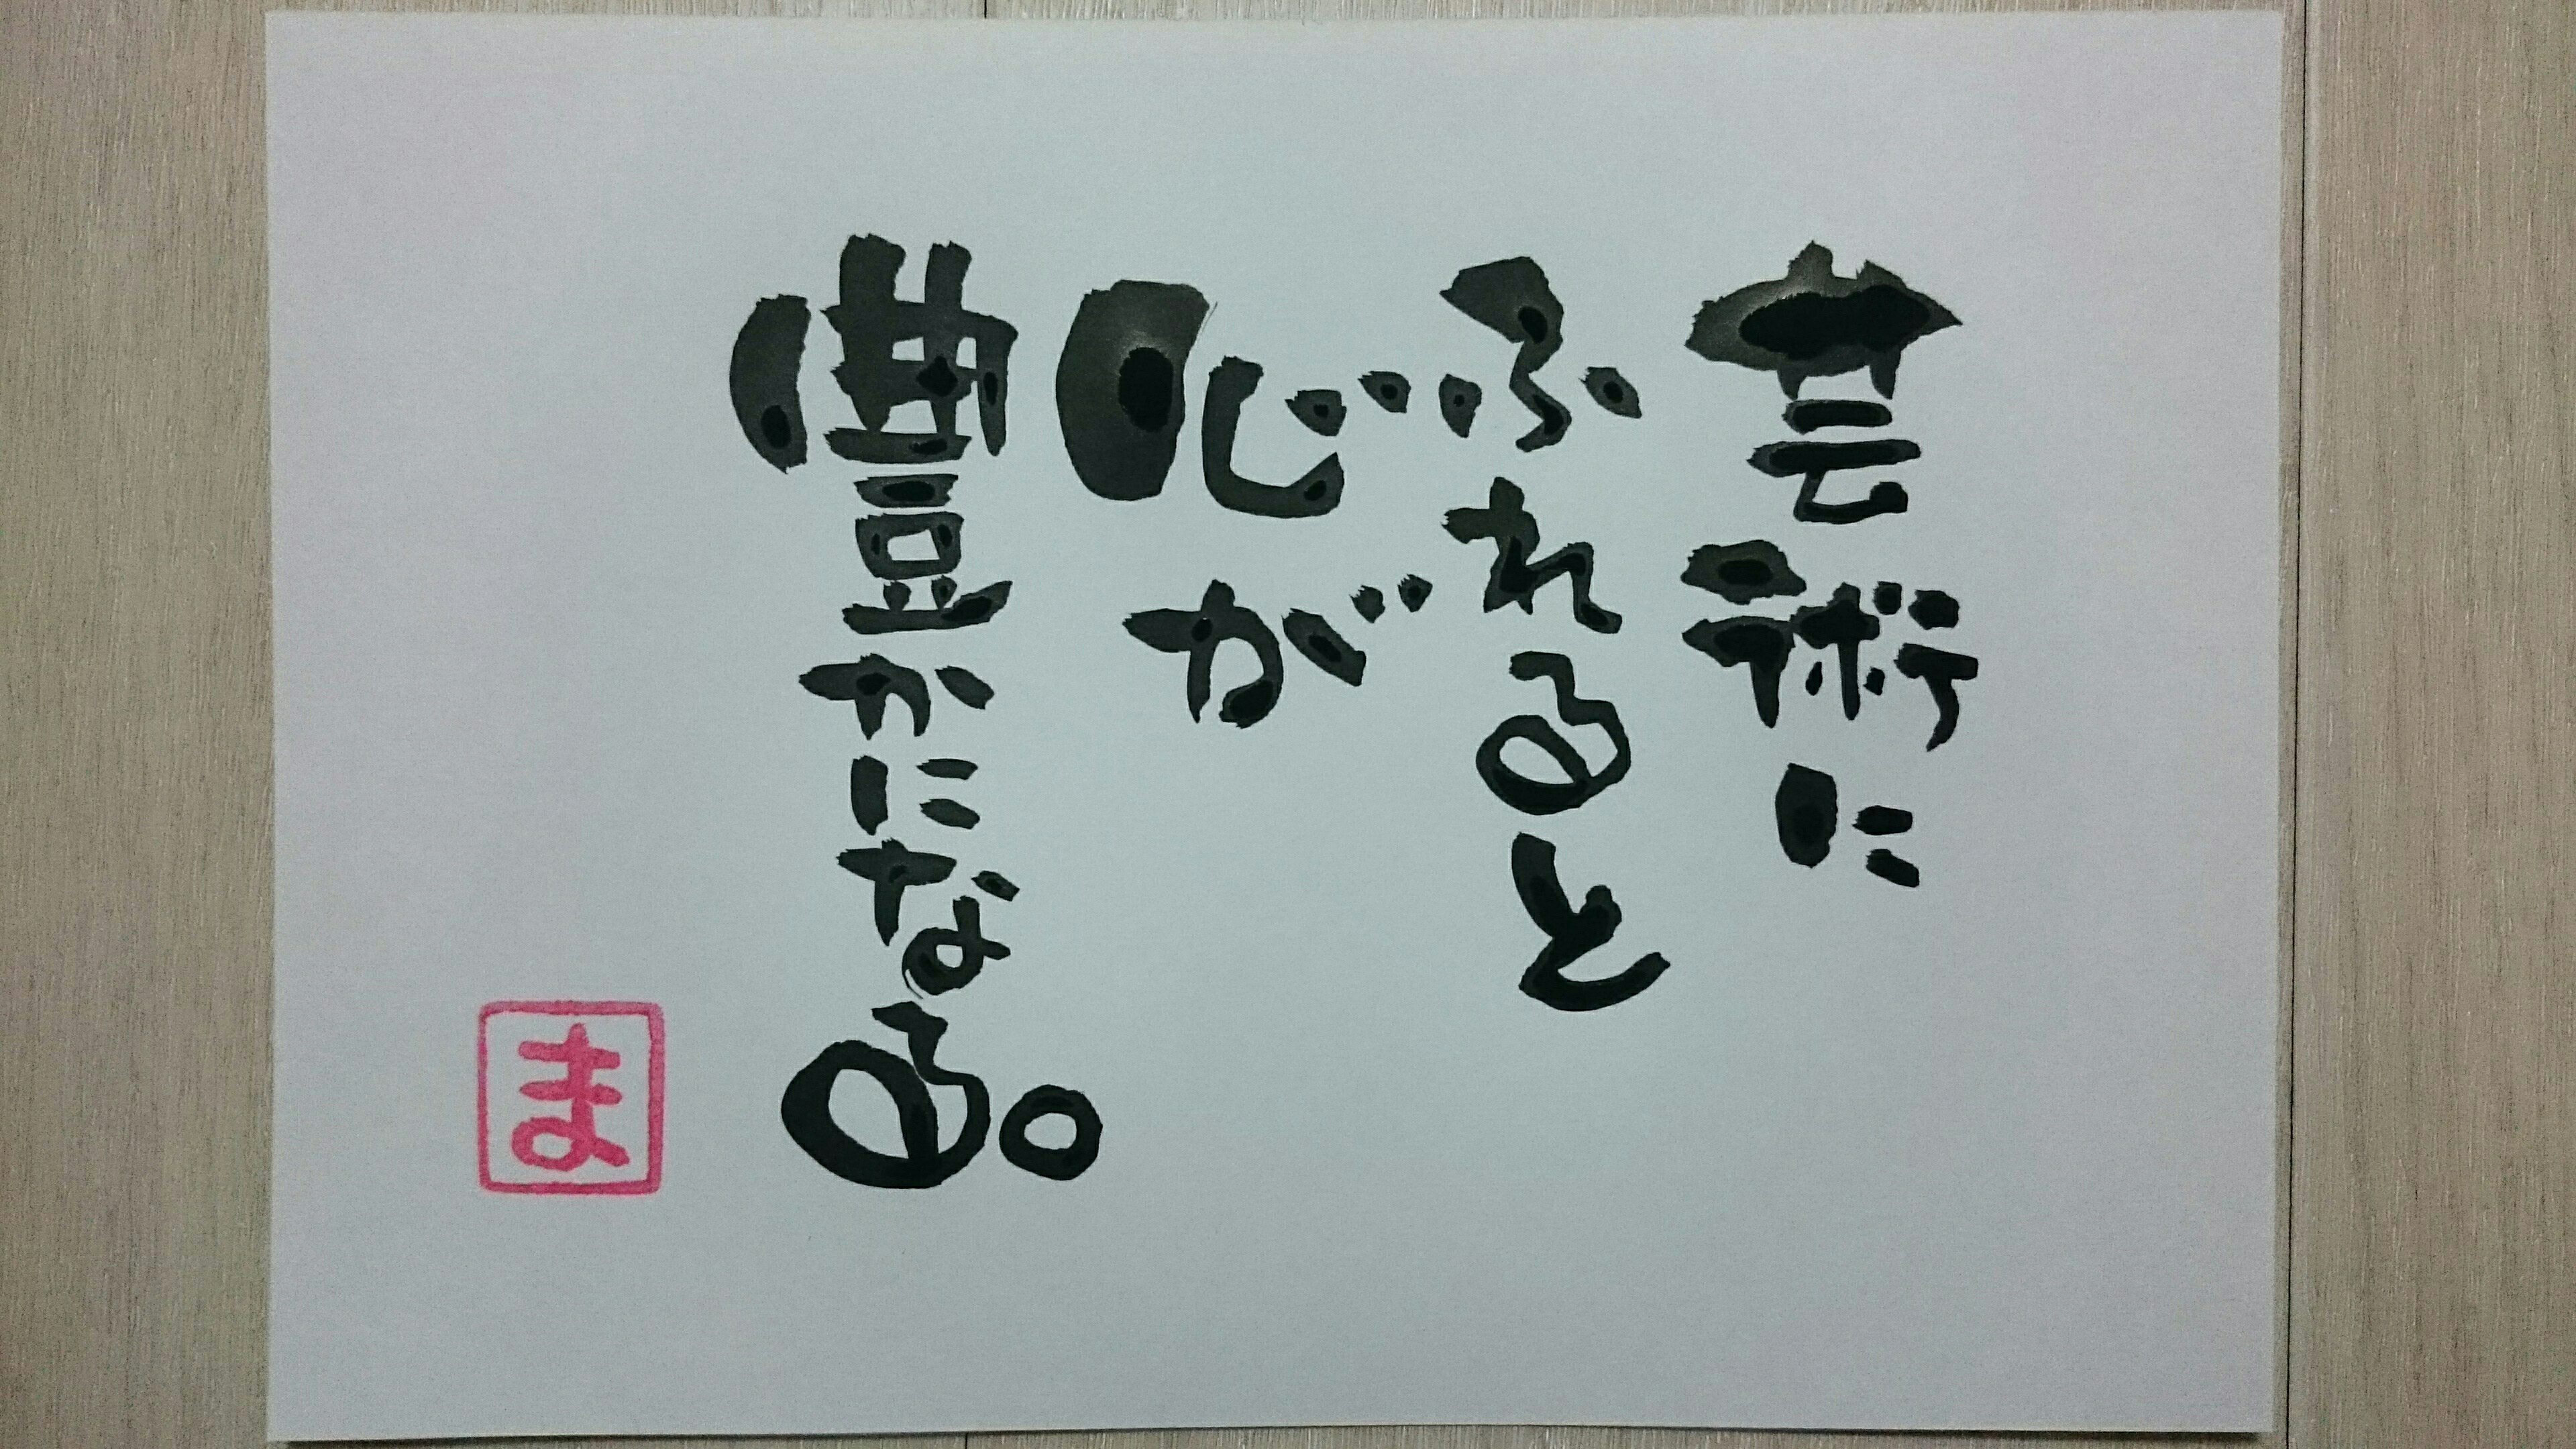 芸術に
ふれると
心が
豊かになる。
ま